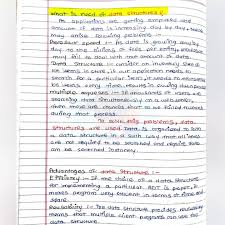 What is need of data structures?
As applications are getting complexed and
amount of data is increasing day by day, there
may arise following problems :-
Processor speed :- As data is growing day by
day to the billions of files per entity, processor
may fail to deal with that amount of data.
Data Structure :- consider an inventory size of
items in store, if our application needs to
search for a particular item, it needs to traverse
items every time, results in slowing down
multiple requests :- If thousands of users are
searching data simultaneously on a web server,
then there are chances that to be failed
during that process.
To solve this problem, data
structures are used. Data is organized to form
a data structure in such a way that all items
are not required to be searched and required data
can be searched instantly.
Advantages of data structure :-
Efficiency :- If the choice of a data structure
for implementing a particular ADT is proper, it makes
program very efficient in terms of time and
space.
Reusability :- The data structure provides reusability
means that multiple client programs can use the
data structure.